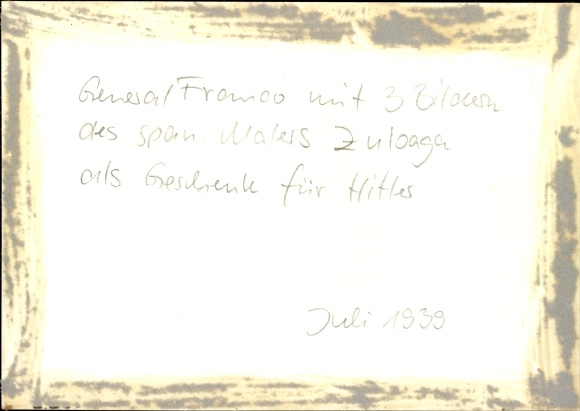 General Franco mit 3 Bildern
des span. Malers Zuloaga
als Geschenk für Hitler
Juli 1939